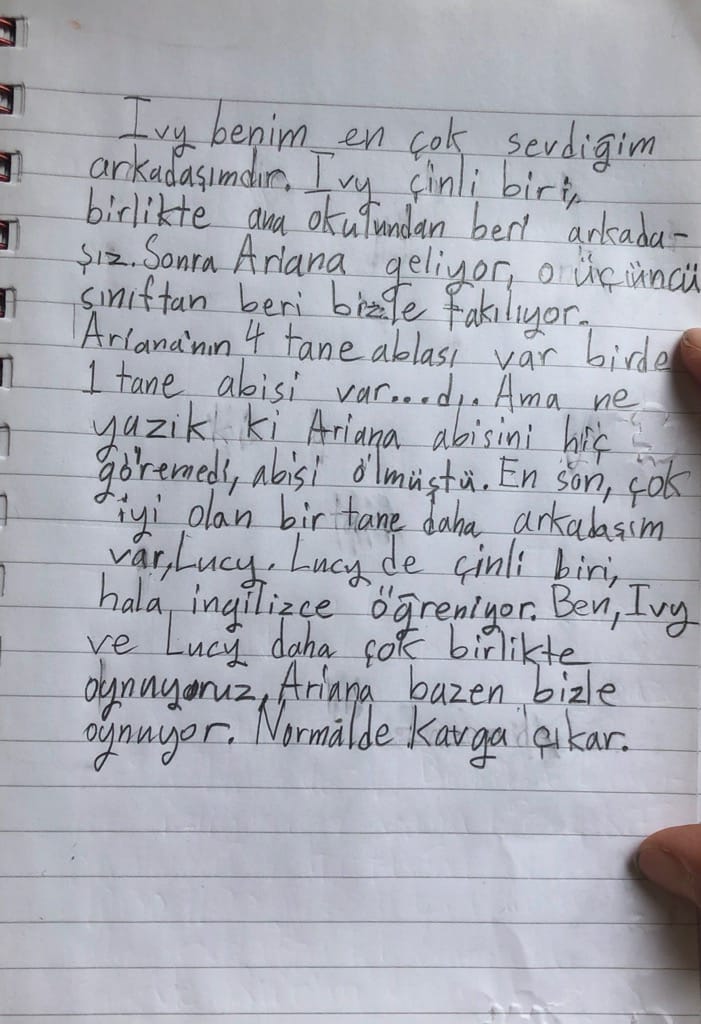 Ivy benim en çok sevdiğim
arkadaşımdır. Ivy çinli biri,
birlikte ana okulundan beri arkada-
şız. Sonra Ariana geliyor, o üçüncü
sınıftan beri bizle takılıyor.
Ariana'nın 4 tane ablası var birde
1 tane abisi var...dı. Ama ne
yazik ki Ariana abisini hiç
göremedi, abisi ölmüştü. En son, çok
iyi olan bir tane daha arkadaşım
var, Lucy. Lucy de çinli biri,
hala ingilizce öğreniyor. Ben, Ivy
ve Lucy daha çok birlikte
oynuyoruz, Ariana bazen bizle
oynuyor. Normalde kavga çıkar.